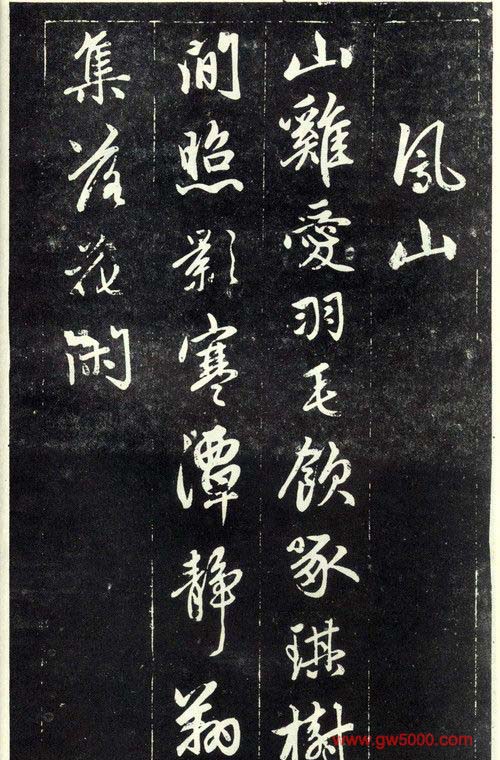 鳳山
山雞愛羽毛飲啄琪樹
間照影寒潭靜翔
集落花閑
www.gw5000.com